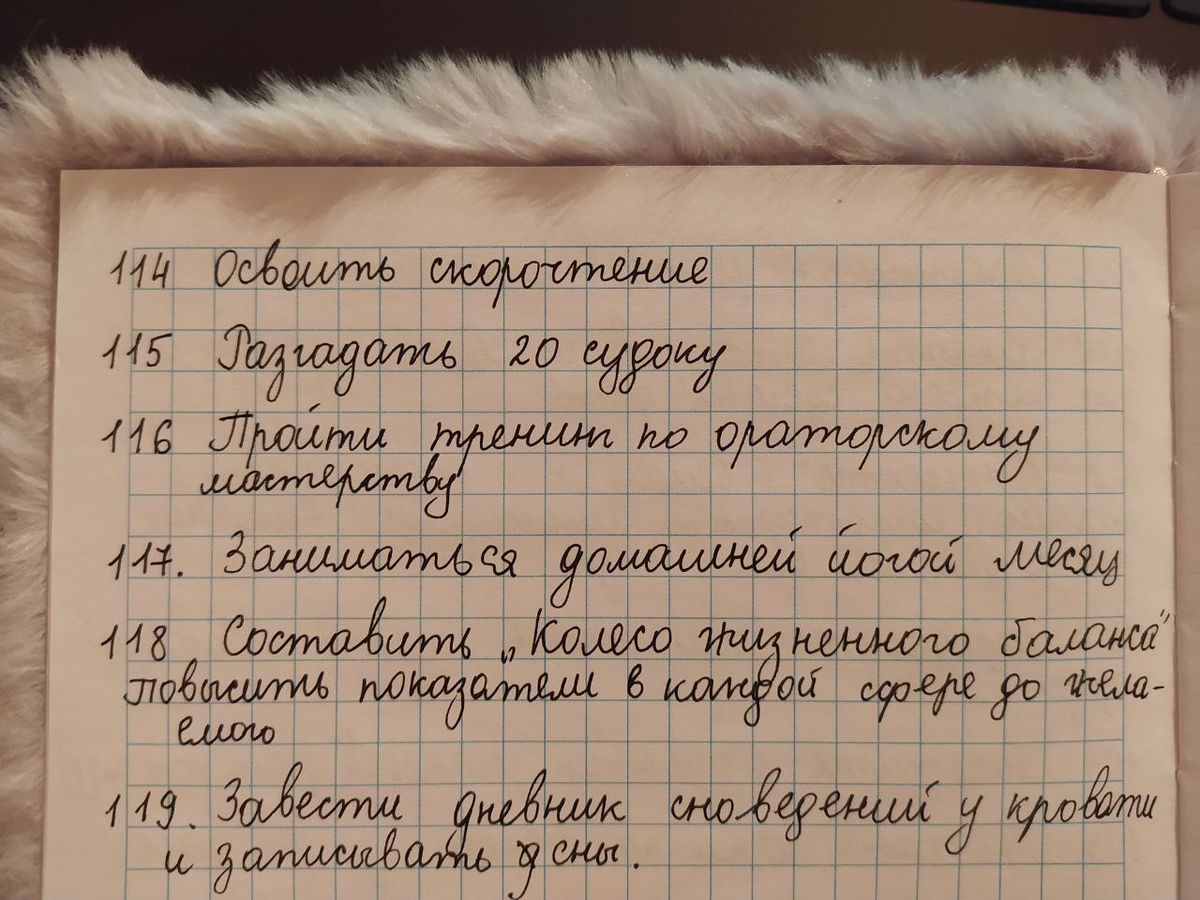 114 Освоить скорочтение
115 Разгадать 20 судоку
116 Пройти тренинг по ораторскому
мастерству
117. Заниматься домашней йогой месяц
118 Составить „Колесо жизненного баланса"
повысить показатели в каждой сфере до жела-
емого
119. Завести дневник сноведений у кровати
и записывать сны.